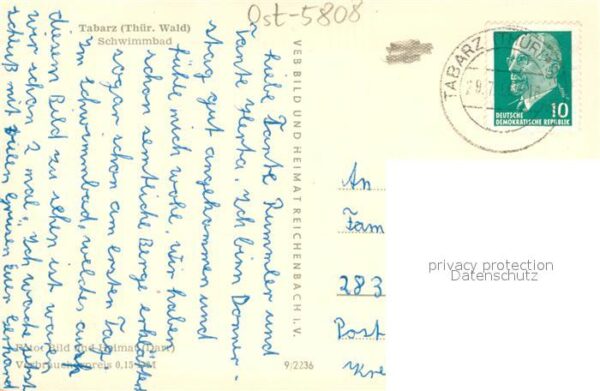 Ost-5808
Tabarz (Thür. Wald)
Schwimmbad
Liebe Tante Rummler und
Tante Herta, Ich binn Donner-
stag gut angekommen und
fühle mich wohl, wir haben
schon semtliche Berge erklettert
sogar schon am ersten Tag.
Im Schwimmbad, welches auf
diesen Bild zu sehen ist waren
wir schon 2 mal. Ich mache jetzt
schluß mit vielen Grüßen Euer Gerhard
Foto: Bild und Heimat (Darr)
Verbraucherpreis 0,15 DM
9/2236
VEB BILD UND HEIMAT REICHENBACH I. V.
TABARZ THÜR
10
DEUTSCHE
DEMOKRATISCHE REPUBLIK
An
Fam
283
Post
Kre
privacy protection
Datenschutz